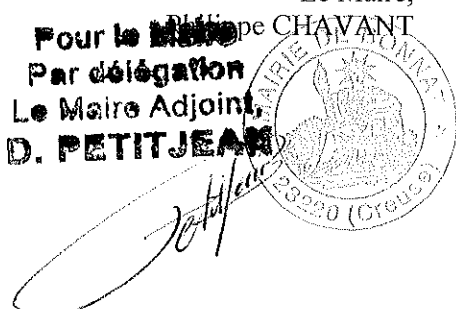 Le Maire,
Philippe CHAVANT
Pour le Maire
Par délégation
Le Maire Adjoint,
D. PETITJEAN
MAIRIE DE BONNAT
23220 (Creuse)